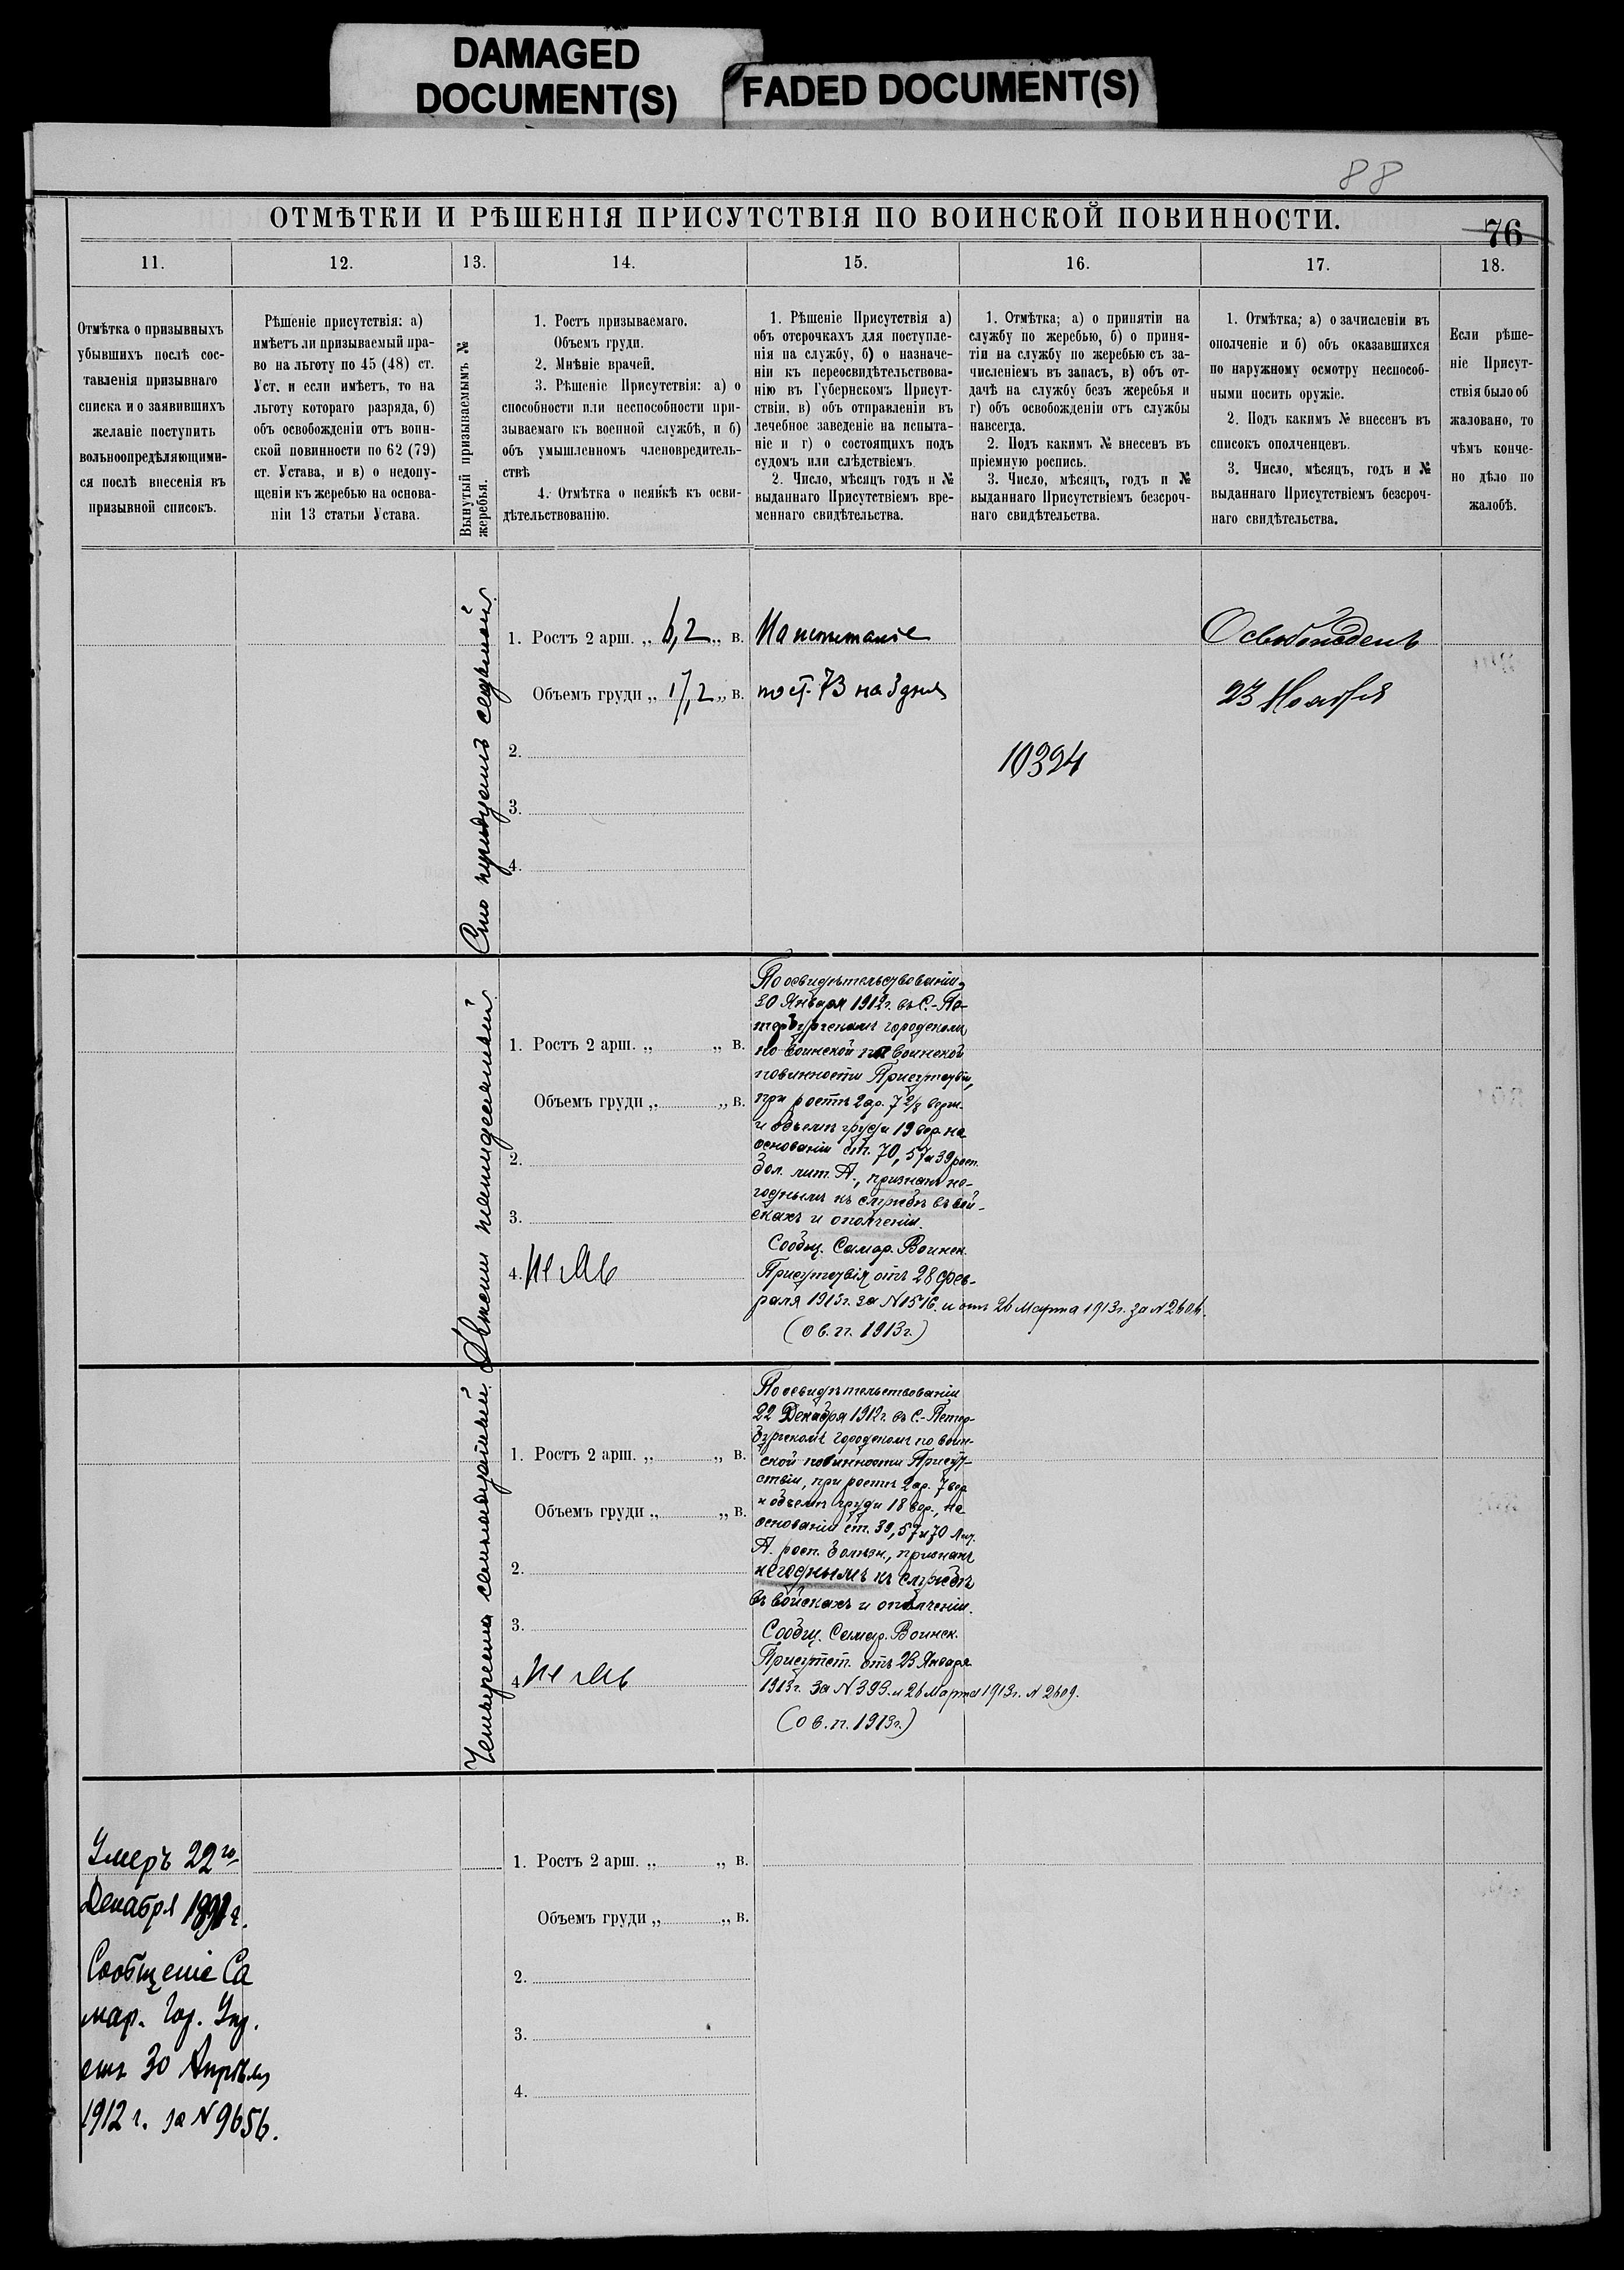 DAMAGED
DOCUMENT(S)
FADED DOCUMENT(S)
88
ОТМѢТКИ И РѢШЕНІЯ ПРИСУТСТВІЯ ПО ВОИНСКОЙ ПОВИННОСТИ.
76
11.
12.
13.
14.
15.
16.
17.
18.
Отмѣтка о призывныхъ
убывшихъ послѣ сос-
тавленія призывнаго
списка и о заявившихъ
желаніе поступить
вольноопредѣляющими-
ся послѣ внесенія въ
призывной списокъ.
Рѣшеніе присутствія: а)
имѣетъ ли призываемый пра-
во на льготу по 45 (48) ст.
Уст. и если имѣетъ, то на
льготу котораго разряда, б)
объ освобожденіи отъ воин-
ской повинности по 62 (79)
ст. Устава, и в) о недопу-
щеніи къ жеребью на основа-
ніи 13 статьи Устава.
Вынутый призываемымъ №
жеребья.
1. Ростъ призываемаго.
Объемъ груди.
2. Мнѣніе врачей.
3. Рѣшеніе Присутствія: а) о
способности или неспособности при-
зываемаго къ военной службѣ, и б)
объ умышленномъ членовредитель-
ствѣ
4. Отмѣтка о неявкѣ къ осви-
дѣтельствованію.
1. Рѣшеніе Присутствія а)
объ отсрочкахъ для поступле-
нія на службу, б) о назначе-
ніи къ переосвидѣтельствова-
нію въ Губернскомъ Присут-
ствіи, в) объ отправленіи въ
лечебное заведеніе на испыта-
ніе и г) о состоящихъ подъ
судомъ или слѣдствіемъ
2. Число, мѣсяцъ годъ и №
выданнаго Присутствіемъ вре-
меннаго свидѣтельства.
1. Отмѣтка; а) о принятіи на
службу по жеребью, б) о приня-
тіи на службу по жеребью съ за-
численіемъ въ запасъ, в) объ от-
дачѣ на службу безъ жеребья и
г) объ освобожденіи отъ службы
навсегда.
2. Подъ какимъ № внесенъ въ
пріемную роспись.
3. Число, мѣсяцъ, годъ и №
выданнаго Присутствіемъ безсроч-
наго свидѣтельства.
1. Отмѣтка; а) о зачисленіи въ
ополченіе и б) объ оказавшихся
по наружному осмотру неспособ-
ными носить оружіе.
2. Подъ какимъ № внесенъ въ
списокъ ополченцевъ.
3. Число, мѣсяцъ, годъ и №
выданнаго Присутствіемъ безсроч-
наго свидѣтельства.
Если рѣше-
ніе Присут-
ствія было об
жаловано, то
чѣмъ конче-
но дѣло по
жалобѣ.
Сто тридцать седьмой
1. Ростъ 2 арш. „ 6,2 „ в.
Объемъ груди „ 17,2 „ в.
2.
3.
4.
На испытаніе
по ст. 73 на 3 дня
10394
Освобожденъ
23 Ноября
Двѣсти шестидесятый
1. Ростъ 2 арш. „ „ в.
Объемъ груди „ „ в.
2.
3.
4. не яв
По освидѣтельствованіи
30 Января 1912 г. въ С.-Пе-
тербургскомъ городскомъ
по воинской по воинской
повинности Присутствіи,
при ростѣ 2 ар. 7 2/8 верш.
и объемѣ груди 19 вер. на
основаніи ст. 70, 57 и 39 росп.
бол. лит. А., признанъ не-
годнымъ къ службѣ въ вой-
скахъ и ополченіи.
Сообщ. Самар. Воинск.
Присутствія отъ 28 фев-
раля 1913 г. за N 1516. и отъ 26 Марта 1913 г. за N 2606.
(о в. п. 1913 г.)
Четыреста семнадцатый
1. Ростъ 2 арш. „ „ в.
Объемъ груди „ „ в.
2.
3.
4 не яв
По освидѣтельствованіи
22 Декабря 1912 г. въ С.-Петер-
бургскомъ городскомъ по воин-
ской повинности Присут-
ствіи, при ростѣ 2 ар. 7 вер
и объемѣ груди 18 вер., на
основаніи ст. 39, 57 и 70 Лит.
А. росп. болѣзн., признанъ
негоднымъ къ службѣ
въ войскахъ и ополченіи.
Сообщ. Самар. Воинск.
Присутст. отъ 23 Января
1913 г. за N 393. и 26 Марта 1913 г. N 2609.
(о в. п. 1913 г.)
Умеръ 22го
Декабря 1891 г.
Сообщеніе Са
мар. Гор. Упр.
отъ 30 Апрѣля
1912 г. за N 9656.
1. Ростъ 2 арш. „ „ в.
Объемъ груди „ „ в.
2.
3.
4.